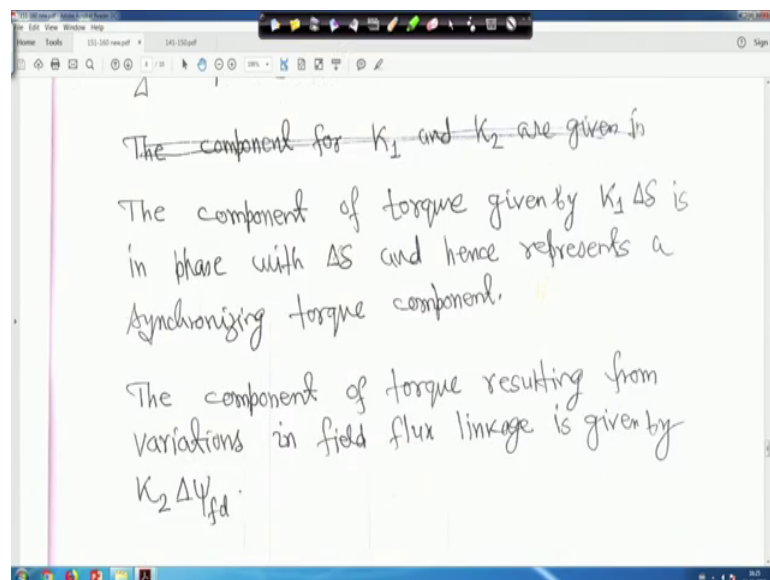 151-160 new.pdf - Adobe Acrobat Reader DC
File Edit View Window Help
Home Tools 151-160 new.pdf × 141-150.pdf Sign
The component for K₁ and K₂ are given in
The component of torque given by K₁ ΔS is
in phase with ΔS and hence represents a
synchronizing torque component.
The component of torque resulting from
variations in field flux linkage is given by
K₂ ΔΨfd.